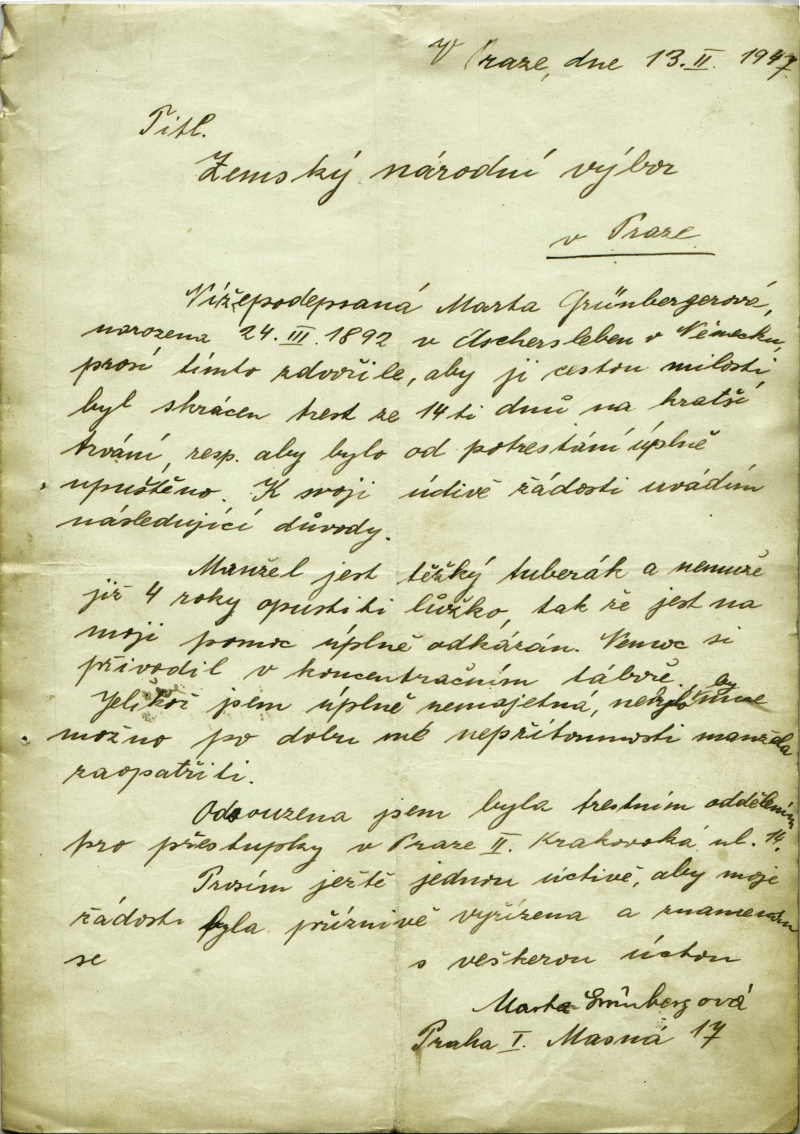 V Praze, dne 13. II. 1947.
Titl.
Zemský národní výbor
v Praze
Nížepodepsaná Marta Grünbergerová,
narozena 24. III. 1892 v Aschersleben v Německu,
prosí tímto zdvořile, aby ji cestou milosti
byl zkrácen trest ze 14ti dnů na kratší
trvání, resp. aby bylo od potrestání úplně
upuštěno. K svoji úctivé žádosti uvádím
následující důvody.
Manžel jest těžký tuberák a nemůže
již 4 roky opustiti lůžko, tak že jest na
moji pomoc úplně odkázán. Nemoc si
přivodil v koncentračním táboře.
Jelikož jsem úplně nemajetná, nebylo by mne
možno po dobu mé nepřítomnosti manžela
zaopatřiti.
Odsouzena jsem byla trestním oddělením
pro přestupky v Praze II. Krakovská ul. 14.
Prosím ještě jednou úctivě, aby moje
žádost byla příznivě vyřízena a znamenám
se s veškerou úctou
Marta Grünbergová
Praha I. Masná 17